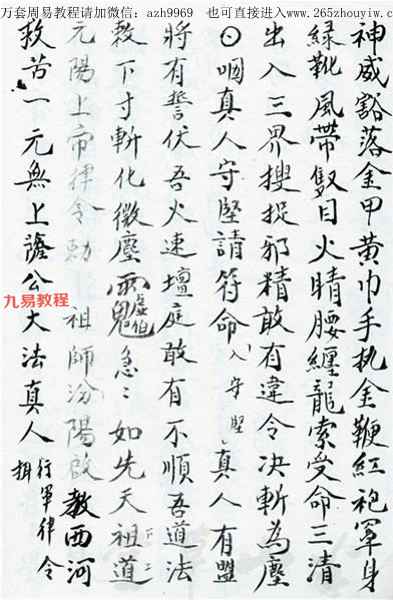 万套周易教程请加微信：azh9969 也可直接进入www.265zhouyiw.c
神威豁落金甲黄巾手执金鞭紅袍罩身
緑靴風帶雙目火睛腰纏龍索受命三清
出入三界搜捉邪精敢有違令决斬為塵
〇咽真人守堅請符命入守堅真人有盟
將有誓伏吾火速壇庭敢有不順吾道法
教下寸斬化微塵急〻如先天祖道
元陽上帝律令勅 祖師汾陽啟教西河
救苦一元無上薩公大法真人行軍律令
九易教程